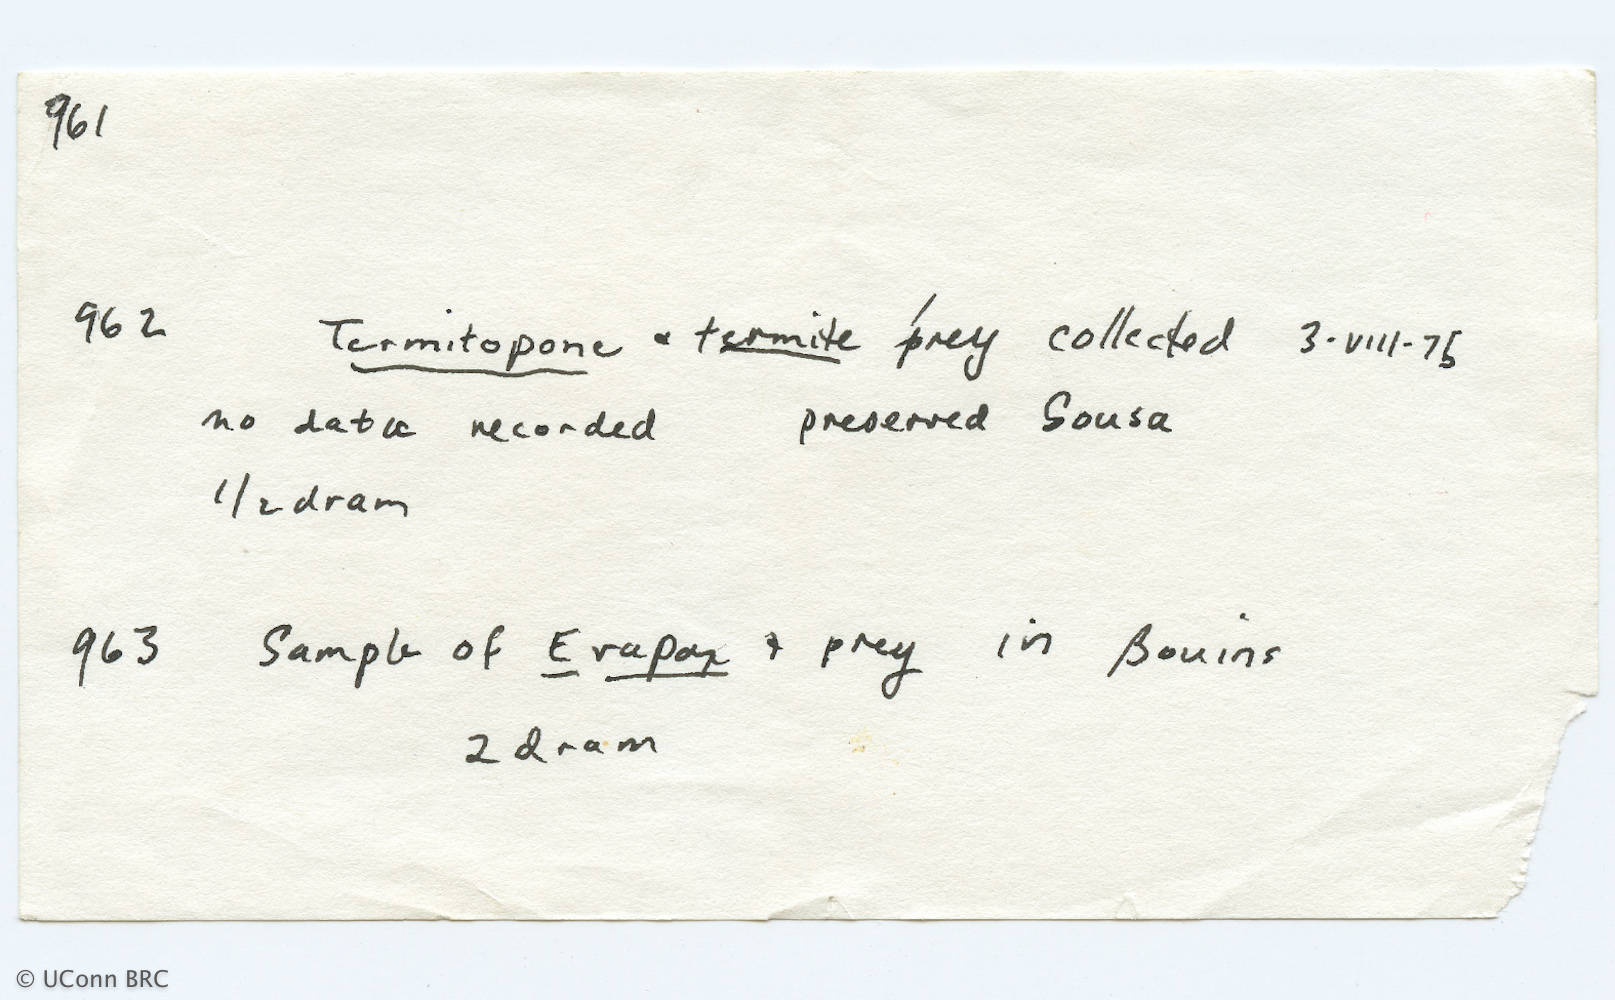 961
962 Termitopone & termite prey collected 3-VIII-75
no data recorded preserved Sousa
1/2 dram
963 Sample of E rapax & prey in Bouins
2 dram
© UConn BRC